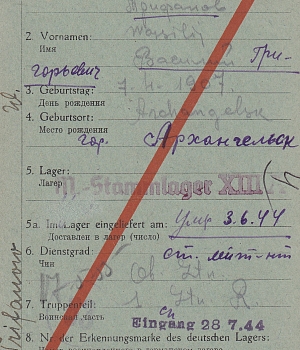 Трифанов
2. Vornamen: Wassilij
Имя Василий Гри-
горьевич
3. Geburtstag: 7. 4. 1907
День рождения
4. Geburtsort: Archangelsk
Место рождения
гор. Архангельск
5. Lager:
Лагерь
M.-Stammlager XIII
5a. Im Lager eingeliefert am: умр 3.6.44
Доставлен в лагерь (число)
6. Dienstgrad: ст. лейт-нт
Чин Ob. Ltn.
7. Truppenteil:
Воинская часть
Eingang 28 7.44
8. Nr. der Erkennungsmarke des deutschen Lagers: